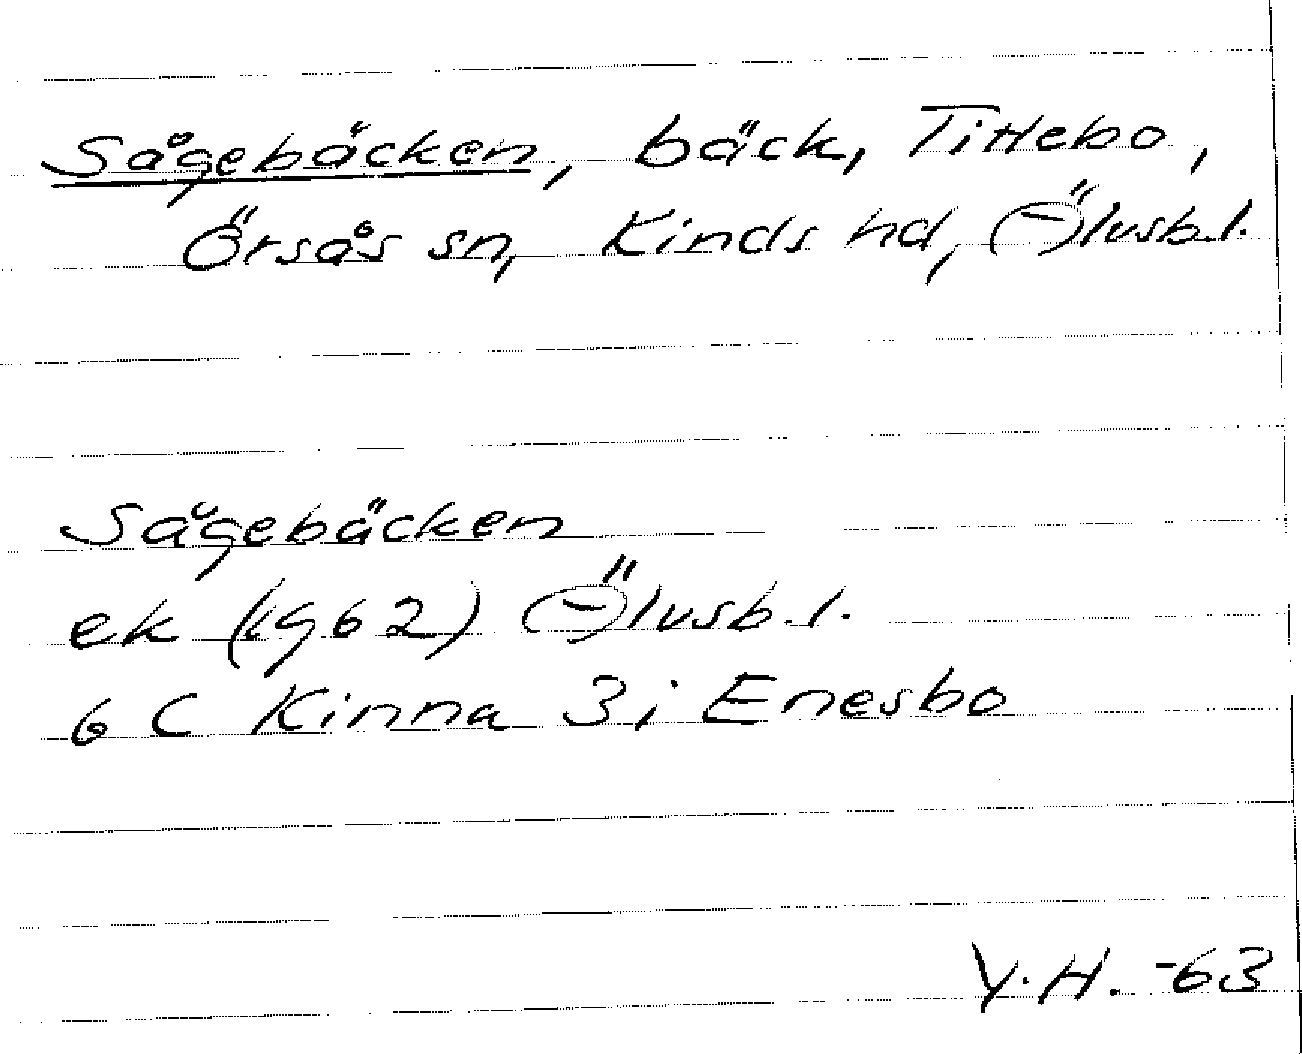 Sågebäcken, bäck, Tittebo,
Örsås sn, Kinds hd, Älvsb.l.
Sågebäcken
ek (1962) Älvsb.l.
6 C Kinna 3i Enesbo
Y.H. -63